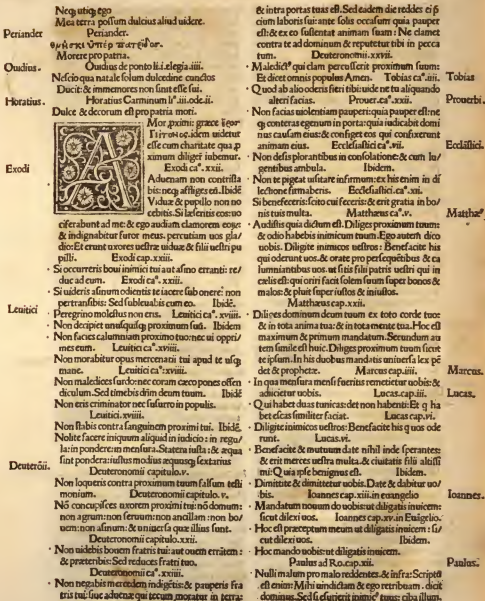 Neq; utiq; ego
Mea terra possum dulcius aliud uidere.
Periander Periander.
θνῆσκε ὑπὲρ πατρίδος.
Morere pro patria.
Ouidius. Ouidius de ponto li.i.elegia.iiii.
Nescio qua natale solum dulcedine cunctos
Ducit: & immemores non sinit esse sui.
Horatius. Horatius Carminum li.iii.ode.ii.
Dulce & decorum est pro patria mori.
A Mor proximi: græce
idem uidetur
esse cum charitate qua p
ximum diligere iubemur.
Exodi Exodi ca.xxii.
Aduenam non contrista
bis: neq; affliges eū. Ibidē
Viduæ & pupillo non no
cebitis. Si læseritis eos: uo
ciferabunt ad me: & ego audiam clamorem eorum
& indignabitur furor meus: percutiam uos gla/
dio: Et erunt uxores uestræ uiduæ & filii uestri pu
pilli. Exodi cap.xxiii.
Si occurreris boui inimici tui aut asino erranti: re/
duc ad eum. Exodi ca.xxiii.
Si uideris asinum odientis te iacere sub onere: non
pertransibis: Sed subleuabis cum eo. Ibidē.
Leuitici Peregrino molestus non eris. Leuitici ca.xviiii.
Non decipiet unusquisq; proximum suū. Ibidem
Non facies calumniam proximo tuo: nec ui oppri/
mes eum. Leuitici ca.xviiii.
Non morabitur opus mercenarii tui apud te usq;
mane. Leuitici ca.xviiii.
Non maledices surdo: nec coram cæco pones offen
diculum. Sed timebis dñm deum tuum. Ibidē
Non eris criminator nec susurro in populis.
Leuitici.xviiii.
Non stabis contra sanguinem proximi tui. Ibidē.
Nolite facere iniquum aliquid in iudicio: in regu/
la: in pondere: in mensura. Statera iusta: & æqua
sint pondera: iustus modius æquusq; sextarius
Deuterōii. Deuteronomii capitulo.v.
Non loqueris contra proximum tuum falsum testi
monium. Deuteronomii capitulo.v.
Nō concupisces uxorem proximi tui: nō domum:
non agrum: non seruum: non ancillam: non bo/
uem: non asinum: & uniuersa quæ illius sunt.
Deuteronomii capitulo.xxii.
Non uidebis bouem fratris tui: aut ouem errātem:
& præteribis: Sed reduces fratri tuo.
Deuteronomii ca.xxiiii.
Non negabis mercedem indigētis: & pauperis fra
tris tui: siue aduenæ qui tecum moratur in terra:
& intra portas tuas est. Sed eadem die reddes ei p
cium laboris sui: ante solis occasum quia pauper
est: & ex eo sustentat animam suam: Ne clamet
contra te ad dominum & reputetur tibi in pecca
tum. Deuteronomii.xxvii.
Maledict qui clam percusserit proximum suum:
Et dicet omnis populus Amen. Tobias ca.iiii. Tobias
Quod ab alio oderis fieri tibi: uide ne tu aliquando
alteri facias. Prouer.ca.xxii. Prouerbi.
Non facias uiolentiam pauperi: quia pauper est: ne
q; conteras egenum in porta: quia iudicabit domi
nus causam eius: & configet eos qui confixerunt
animam eius. Ecclesiastici ca.vii. Ecclesiastici.
Non desis plorantibus in consolatione: & cum lu/
gentibus ambula. Ibidem.
Non te pigeat uisitare infirmum: ex his enim in di
lectione firmaberis. Ecclesiastici.ca.xii.
Si benefeceris: scito cui feceris: & erit gratia in bo/
nis tuis multa. Matthæus ca.v. Matthæ
Audistis quia dictum est. Diliges proximum tuum:
& odio habebis inimicum tuum. Ego autem dico
uobis. Diligite inimicos uestros: Benefacite his
qui oderunt uos. & orate pro persequētibus & ca
lumniantibus uos. ut sitis filii patris uestri qui in
cælis est: qui oriri facit solem suum super bonos &
malos: & pluit super iustos & iniustos.
Matthæus cap.xxii.
Diliges dominum deum tuum ex toto corde tuo:
& in tota anima tua: & in tota mente tua. Hoc est
maximum & primum mandatum. Secundum au
tem simile est huic. Diliges proximum tuum sicut
te ipsum. In his duobus mandatis uniuersa lex pē
det & prophetæ. Marcus cap.iiii. Marcus.
In qua mensura mensi fueritis remetietur uobis: &
adiicietur uobis. Lucas.cap.iii. Lucas.
Qui habet duas tunicas: det non habenti: Et q ha
bet escas similiter faciat. Lucas cap.vi.
Diligite inimicos uestros: Benefacite his q uos ode
runt. Lucas.vi.
Benefacite & mutuum date nihil inde sperantes:
& erit merces uestra multa. & eritis filii altissi
mi: Quia ipse benignus est. Ibidem.
Dimittite & dimittetur uobis. Date & dabitur uo/
bis. Ioannes cap.xiii.in euangelio Ioannes.
Mandatum nouum do uobis: ut diligatis inuicem:
sicut dilexi uos. Ioannes cap.xv.in Euāgelio.
Hoc est præceptum meum ut diligatis inuicem: si/
cut dilexi uos. Ibidem.
Hoc mando uobis: ut diligatis inuicem.
Paulus ad Ro.cap.xii. Paulus.
Nulli malum pro malo reddentes. & infra: Scriptū
est enim: Mihi uindictam & ego retribuam: dicit
dominus. Sed si esurierit inimic tuus: ciba illum.